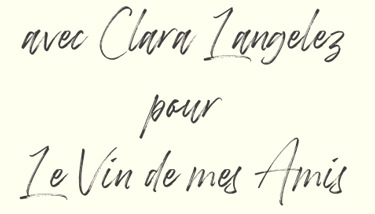 avec Clara Langelez
pour
Le Vin de mes Amis